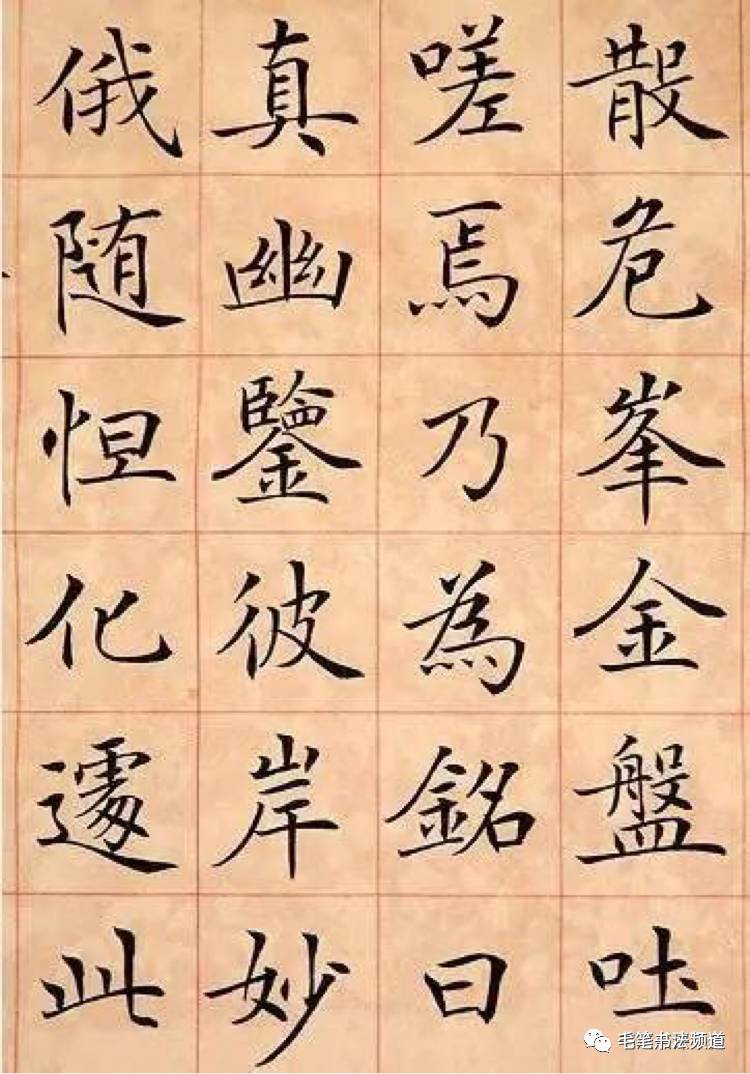 散危峯金盤吐
嗟焉乃為銘曰
真幽鑒彼岸妙
俄随怛化遽此
毛笔书法频道